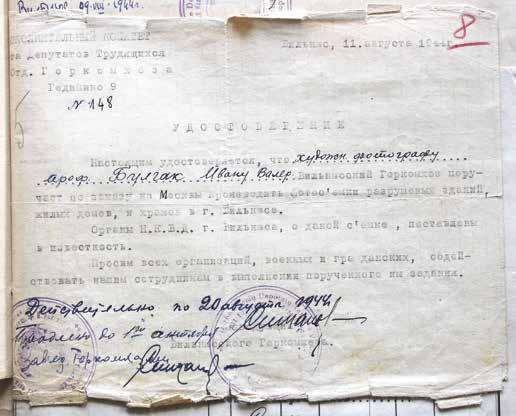 09.VIII-1944г.
8
ИСПОЛНИТЕЛЬНЫЙ КОМИТЕТ
та Депутатов Трудящихся
Отд. Горкомхоза
Гедапино 9
№ 148
Вильнюс, 11.августа 1944г.
УДОСТОВЕРЕНИЕ
Настоящим удостоверяется, что художн. фотографу
проф. Булгак Ивану Валер. Вильнюсский Горкомхоз пору-
чает по приказу из Москвы производить фотос'емки разрушеных зданий,
жилых домов, и храмов в г. Вильнюсе.
Органы Н.К.В.Д. г. Вильнюса, о даной с'емке, поставлены
в известность.
Просим всех организаций, военных и гражданских, содей-
ствовать нашим сотрудникам в выполнении порученного им задания.
Действительно по 20 августа 1944г.
Продлен до 1го сентября
Завед. Горкомхозом
Вильнюсского Горкомхоза.